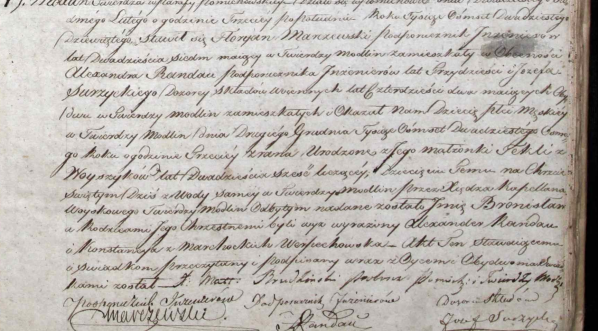 Modlin Twierdza
Lutego o godzinie Trzeciey Popołudniu Roku Tysiąc Ośmset Dwudziestego
Dziewiątego, stawił się Floryan Marszewski Podporucznik Inżenierów
lat Dwadzieścia Siedm maiący w Twierdzy Modlin zamieszkały w Obecności
Alexandra Randau Podporucznika Inżenierów lat Trzydzieści i Józefa
Surzyckiego Dozorcy Składów woiennych lat Czterdzieści dwa maiących Oby
dwu w Twierdzy Modlin zamieszkałych i Okazał Nam Dziecię płci Męskiey
w Twierdzy Modlin dnia Drugiego Grudnia Tysiąc Ośmset Dwudziestego Ósme
go Roku o godzinie Trzeciey z rana Urodzone z Jego małżonki Tekli z
Woyszyków lat Dwadzieścia sześć liczącey, Dziecięciu Temu na Chrzcie
Świętym Dziś z Wody samey w Twierdzy Modlin przez Xiędza Kapellana
Woyskowego Twierdzy Modlin Odbytym nadane zostało Imię Bronisław
a Rodzicami Jego Chrzestnemi byli wyż wyrażony Alexander Randau
i Konstancya z Marchockich Woyciechowska Akt Ten Stawaiącemu
i Świadkom przeczytany i Podpisany wraz z Oycem i Obydwoma Świad
kami został X. Matt: Brudziński Twierdzy Modlin
Podporucznik Inżenierów Podporucznik Inżenierów Dozorca Składów
Marszewski Randau Józef Surzycki